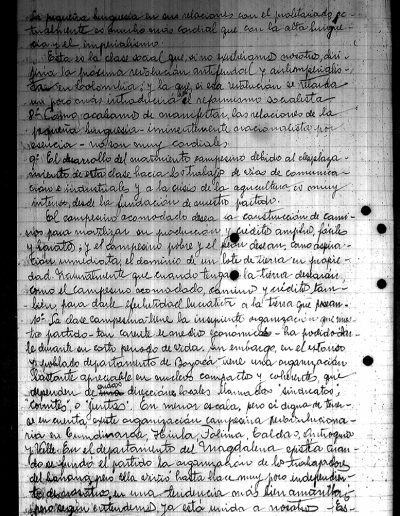 La pequeña burguesía en sus relaciones con el proletariado ac-
tualmente es mucho mas cordial que con la alta burgue-
sía y el imperialismo.
Esta es la clase social que, si no existiéramos nosotros, diri-
giria la próxima revolución antifeudal y antiimperialis-
ta en Colombia; y la que, si esa revolución se retarda
un poco más introducirá el reformismo socialista
8º Como acabamos de manifestar, las relaciones de la
pequeña burguesia - eminentemente nacionalista por
esencia - no son muy cordiales
9º El desarrollo del movimiento campesino debido al desplaza-
miento de esta clase hacia los trabajos de vias de comunica-
ción e industriales y a la crisis de la agricultura es muy
intenso, desde la fundación de nuestro partido.
El campesino acomodado desea la construcción de cami-
nos para movilizar su producción y crédito amplio, fácil
y barato; y el campesino pobre y el peón desean, como aspira-
ción inmediata, el dominio de un lote de tierra en propie-
dad. Naturalmente que cuando tengan la tierra desearán
como el campesino acomodado, camino y crédito tam-
bién para darle efectividad lucrativa a la tierra que posean.
10º La clase campesina tiene la incipiente organización que nues-
tro partido - tan carente de medios económicos - ha podido dar-
le durante su corto periodo de vida. Sin embargo, en el extenso
y poblado departamento de Boyacá tiene una organización
bastante apreciable en nucleos compactos y coherentes, que
dependen de direcciones locales llamadas "sindicatos",
"comités", o "juntas". En menos escala, pero si digna de tener-
se en cuenta, existe organización campesina revoluciona-
ria en Cundinamarca, Huila, Tolima, Caldas, Antioquia
y Valle. En el departamento del Magdalena existía cuan-
do se fundó el partido la organización de los trabajadores
del banano, pero ella vivía hasta hace muy poco independien-
te, desarrollando en una tendencia más bien amarilla
pero según entendemos, ya está unida a nosotros - Es-